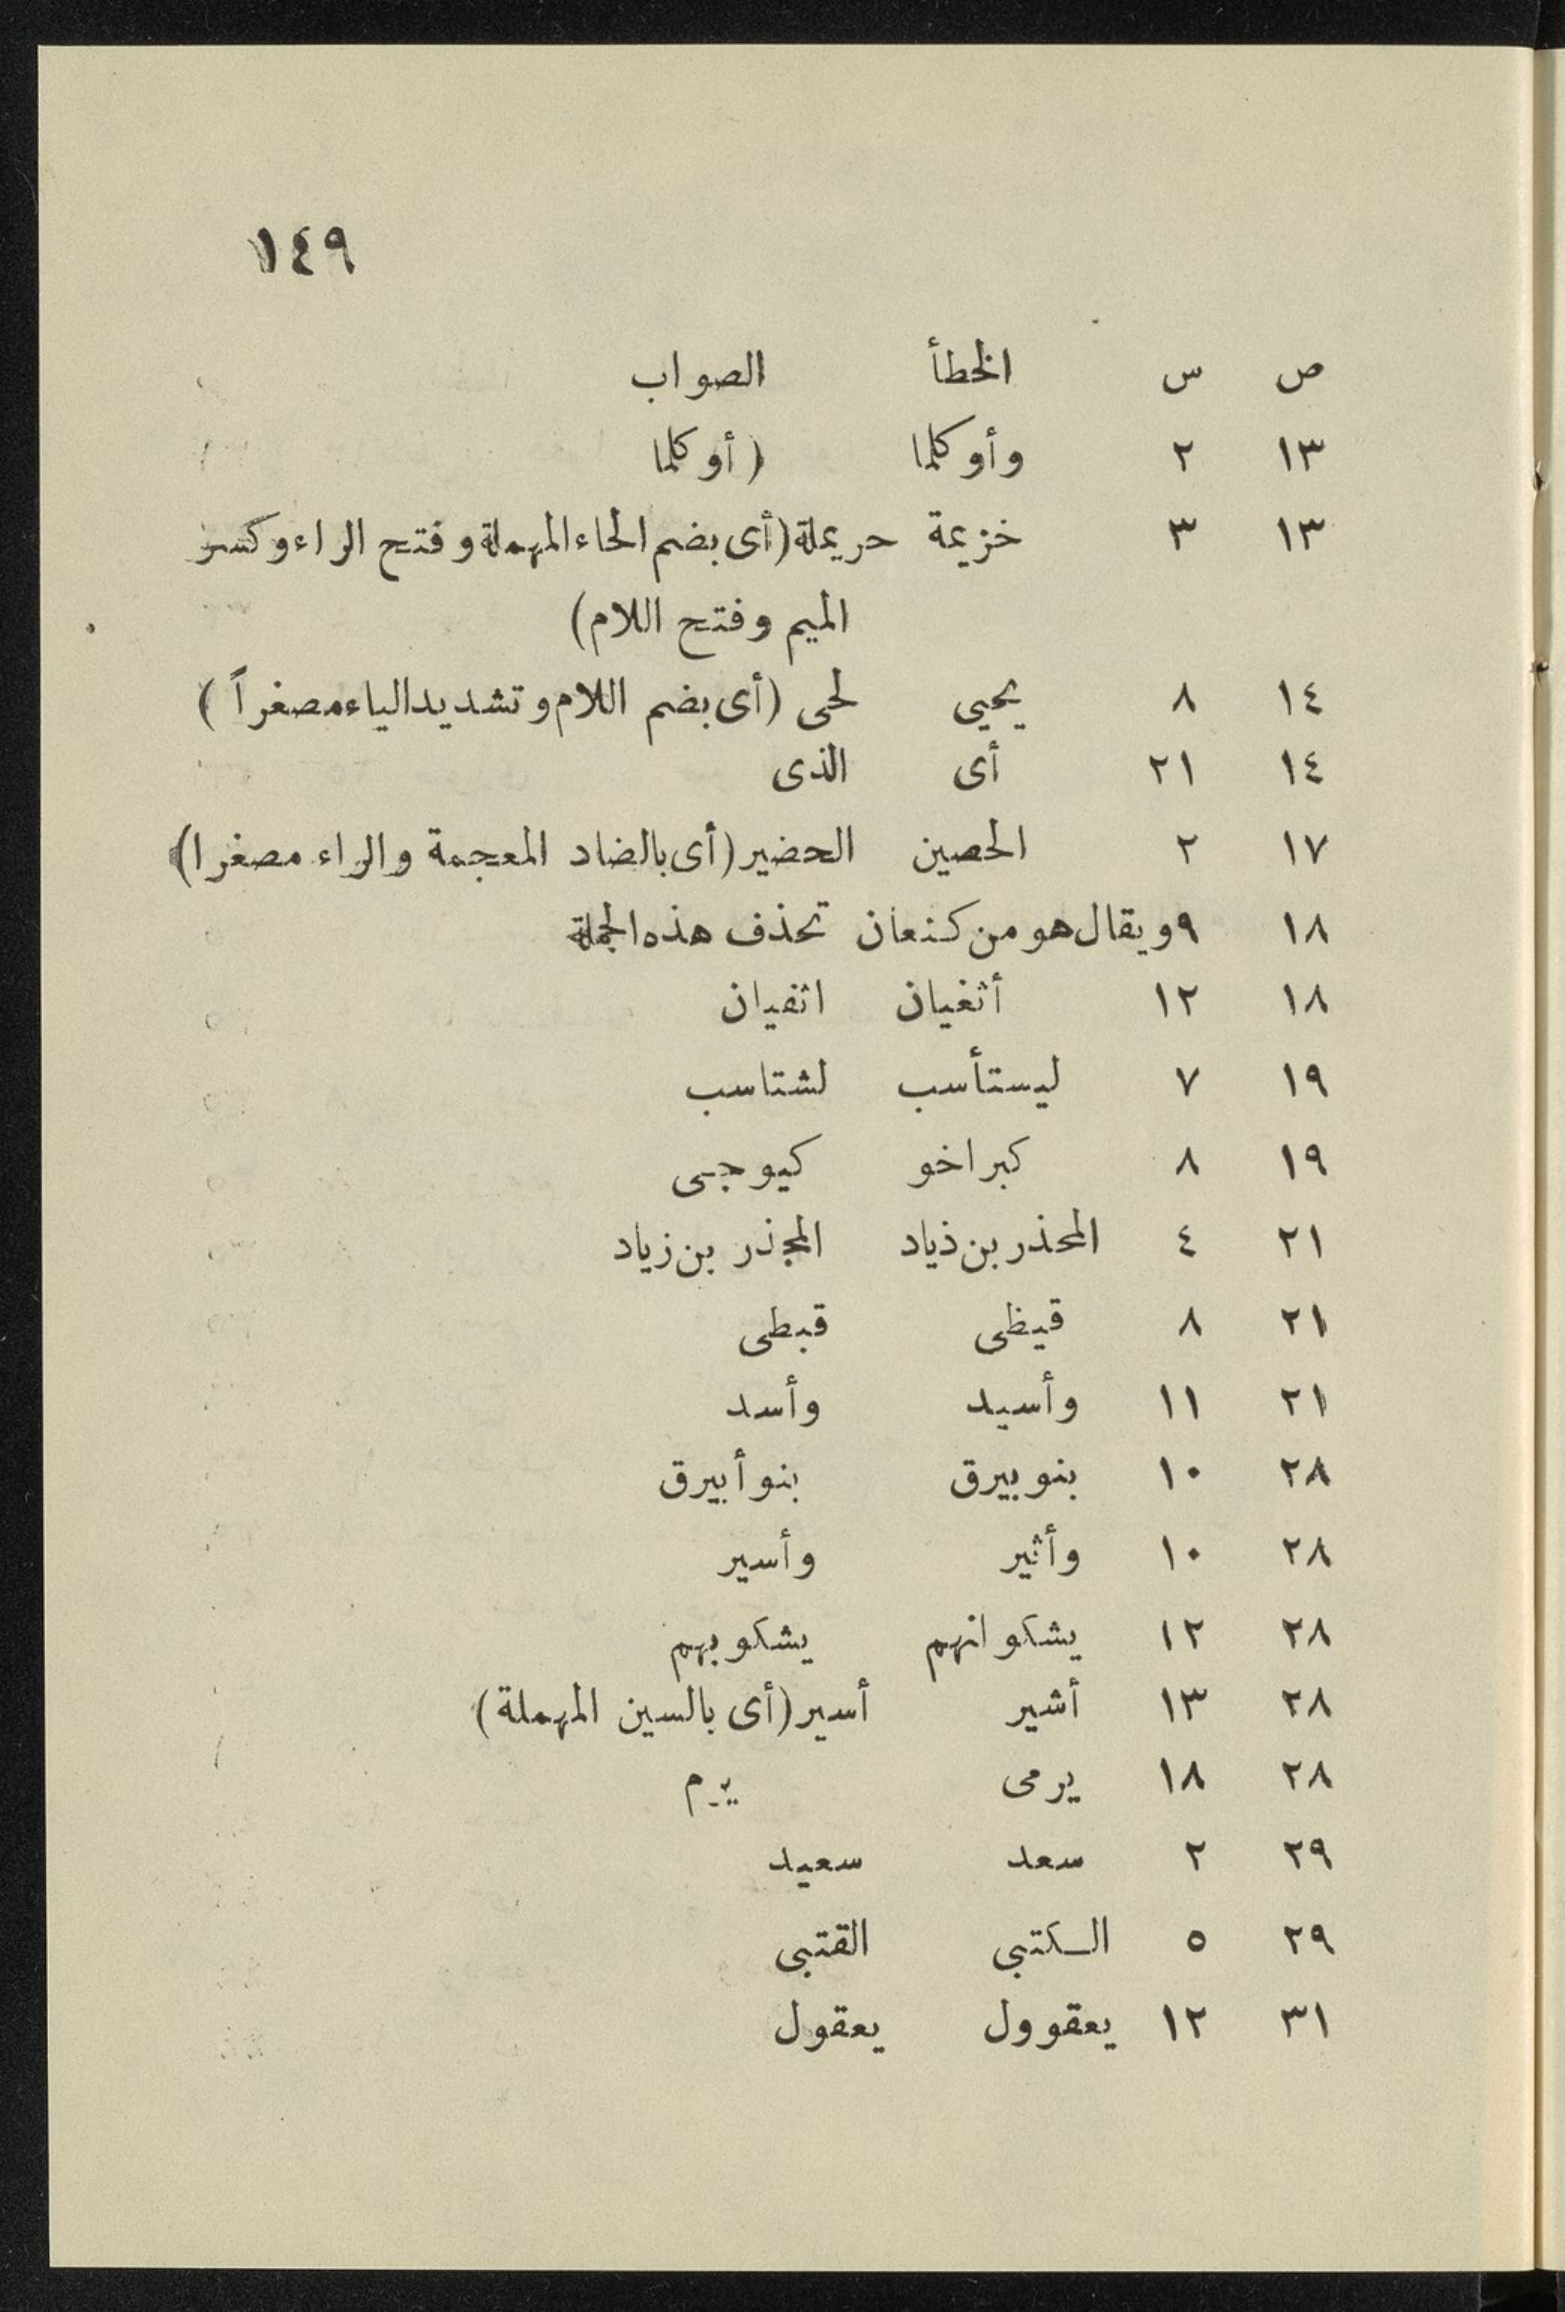 ١٤٩
ص س الخطأ الصواب
١٣ ٢ وأوكلما (أوكلما
١٣ ٣ خزيمة حريملة (أى بضم الحاء المهملة وفتح الراء وكسر
الميم وفتح اللام)
١٤ ٨ يحيى لحى (أى بضم اللام وتشديد الياء مصغراً)
١٤ ٢١ أى الذى
١٧ ٢ الحصين الحضير (أى بالضاد المعجمة والراء مصغرا)
١٨ ٩ ويقال هو من كنعان تحذف هذه الجملة
١٨ ١٢ أثغيان اثفيان
١٩ ٧ ليستأسب لشتاسب
١٩ ٨ كبراخو كيوجى
٢١ ٤ المحذر بن ذياد المجذر بن زياد
٢١ ٨ قيظى قبطى
٢١ ١١ وأسيد وأسد
٢٨ ١٠ بنو بيرق بنو أبيرق
٢٨ ١٠ وأثير وأسير
٢٨ ١٢ يشكوانهم يشكوبهم
٢٨ ١٣ أشير أسير (أى بالسين المهملة)
٢٨ ١٨ يرمى يرم
٢٩ ٢ سعد سعيد
٢٩ ٥ الكتبي القتبى
٣١ ١٢ يعقوول يعقول